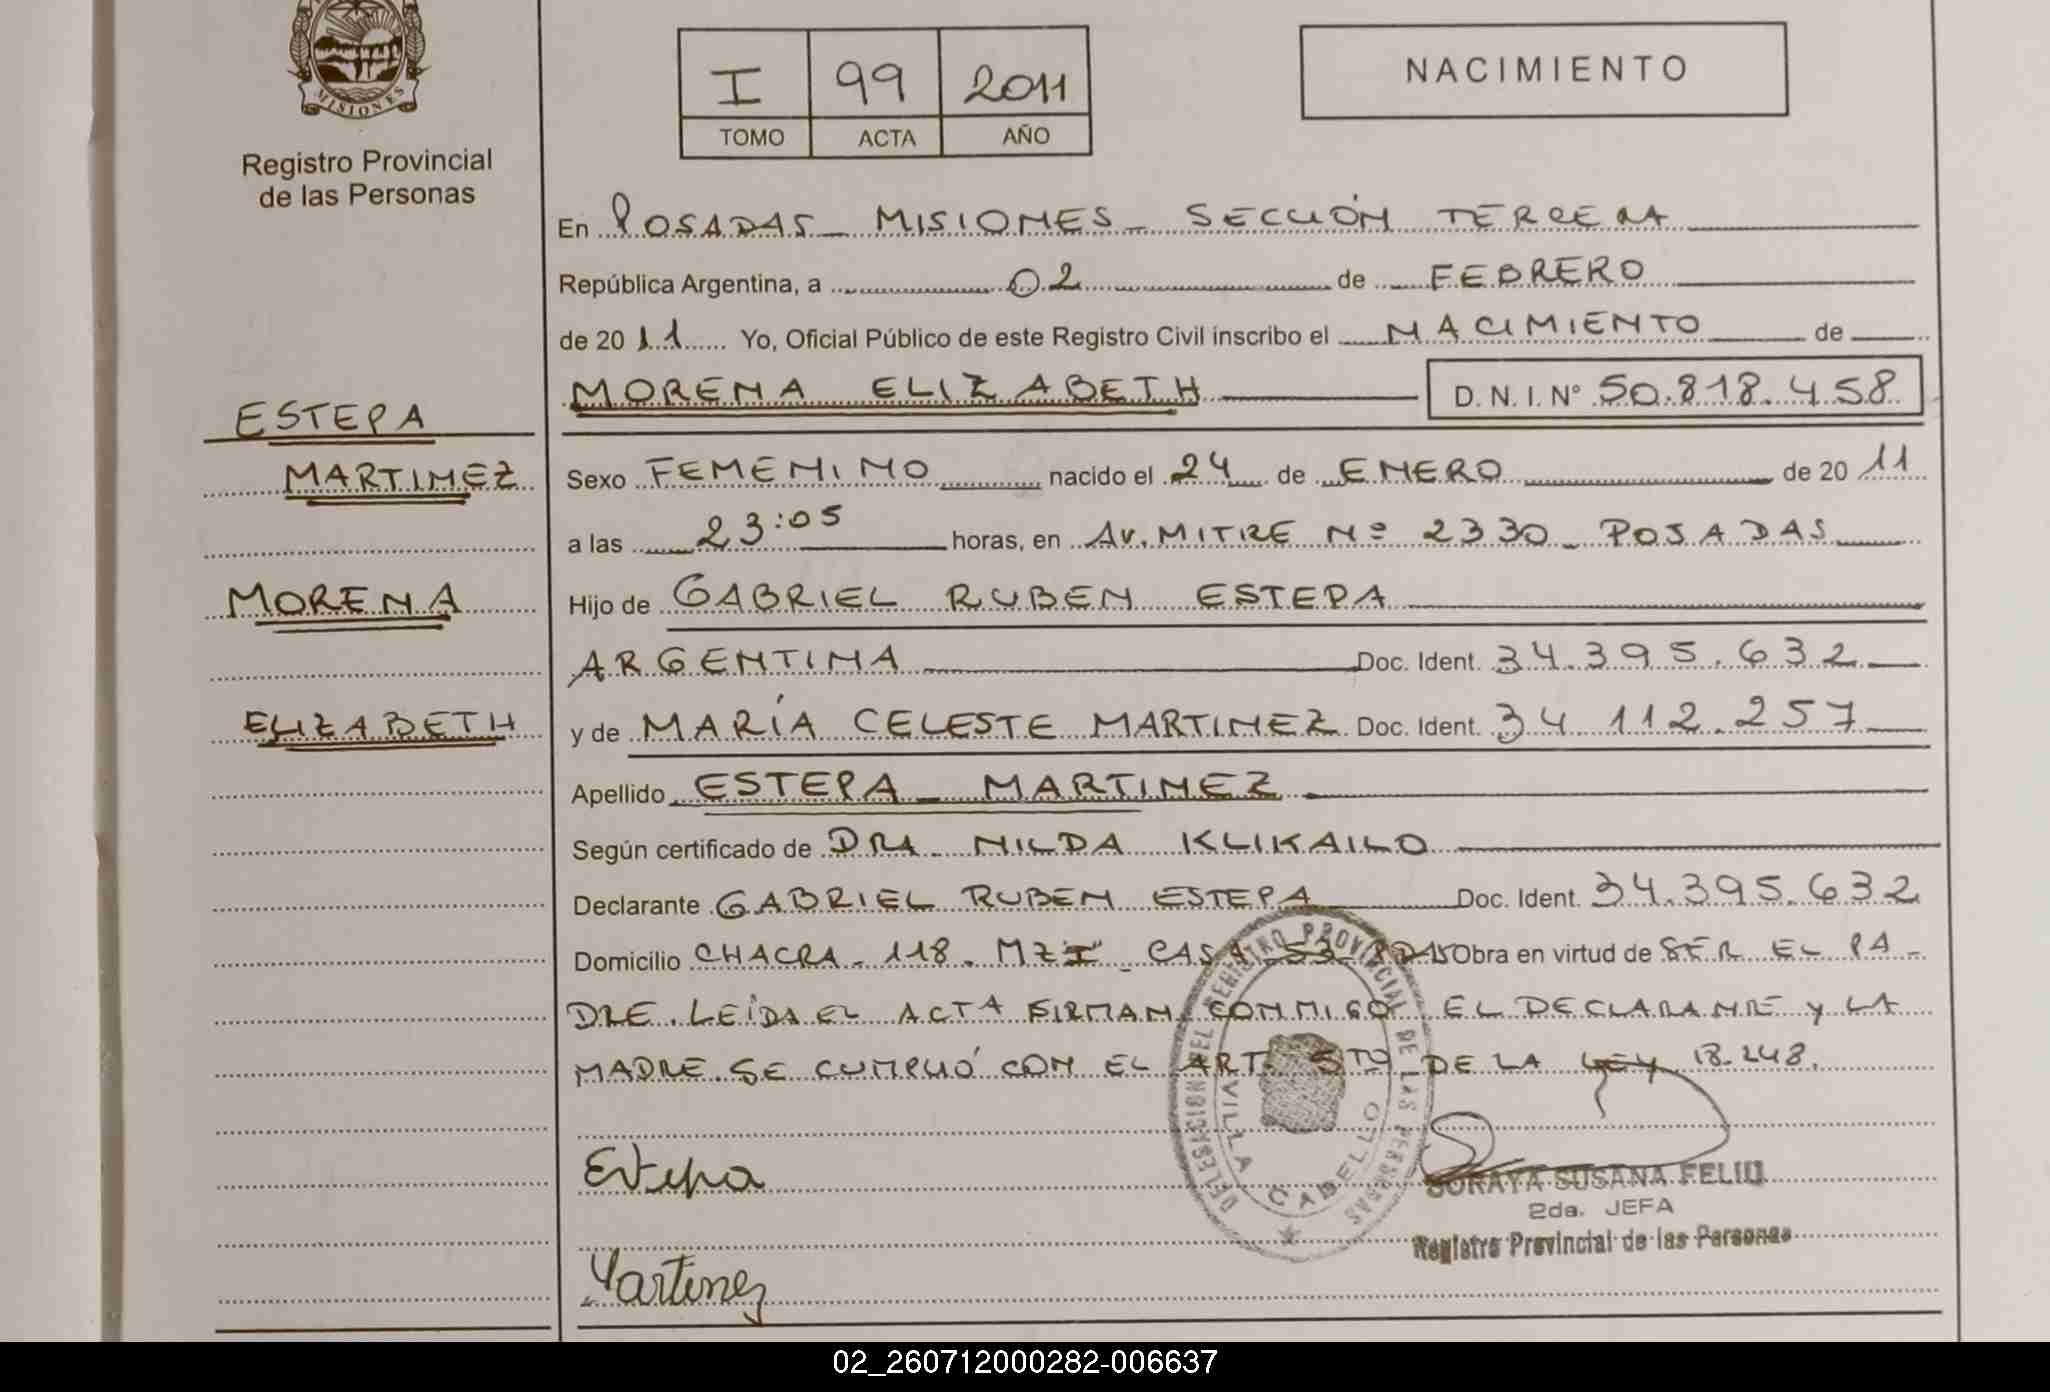 MISIONES
Registro Provincial
de las Personas
I 99 2011
TOMO ACTA AÑO
NACIMIENTO
En POSADAS - MISIONES - SECCIÓN TERCERA
República Argentina, a 02 de FEBRERO
de 2011 Yo, Oficial Público de este Registro Civil inscribo el NACIMIENTO de
MORENA ELIZABETH D. N. I. N° 50.818.458
ESTEPA
MARTINEZ
MORENA
ELIZABETH
Sexo FEMENINO nacido el 24 de ENERO de 2011
a las 23:05 horas, en Av. MITRE Nº 2330 - POSADAS
Hijo de GABRIEL RUBEN ESTEPA
ARGENTINA Doc. Ident. 34.395.632
y de MARÍA CELESTE MARTINEZ Doc. Ident. 34.112.257
Apellido ESTEPA - MARTINEZ
Según certificado de DRA. NILDA KLIKAILO
Declarante GABRIEL RUBEN ESTEPA Doc. Ident. 34.395.632
Domicilio CHACRA - 118. MZ "I" - CASA 53 - PDAS Obra en virtud de SER EL PA-
DRE. LEÍDA EL ACTA FIRMAN CONMIGO EL DECLARANTE y LA
MADRE. SE CUMPLIÓ CON EL ART. 5TO DE LA LEY 18.248.
DELEGACION DEL REGISTRO PROVINCIAL DE LAS PERSONAS
VILLA CABELLO
Estepa
SORAYA SUSANA FELIU
2da. JEFA
Registro Provincial de las Personas
Martinez
02_260712000282-006637